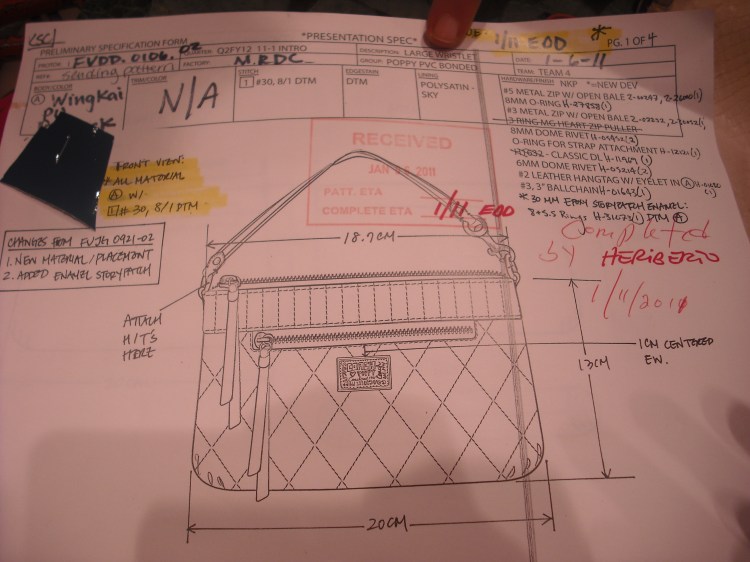 (SC)
PRELIMINARY SPECIFICATION FORM
*PRESENTATION SPEC*
1/11 EOD *
PG. 1 OF 4
PROTO#: EVDD.0106.02
QUARTER: Q2FY12 11-1 INTRO
DESCRIPTION: LARGE WRISTLET
DATE: 1-6-11
MFR: Standing pattern
FACTORY: M.R.D.C.
GROUP: POPPY PVC BONDED
TEAM: TEAM 4
BODY/COLOR
Ⓐ Wingkai
PU
TRIM/COLOR
N/A
STITCH
1 #30, 8/1 DTM
EDGESTAIN
DTM
LINING
POLYSATIN -
SKY
HARDWARE/FINISH: NKP *=NEW DEV
#5 METAL ZIP W/ OPEN BALE
8MM O-RING
#3 METAL ZIP W/ OPEN BALE
3 RING MG HEART ZIP PULLER
8MM DOME RIVET
O-RING FOR STRAP ATTACHMENT
- CLASSIC DL
6MM DOME RIVET
#2 LEATHER HANGTAG W/ EYELET IN Ⓐ
#3, 3" BALLCHAIN
* 30 MM EPOXY STORYPATCH ENAMEL:
DTM Ⓐ
FRONT VIEW:
*ALL MATERIAL
Ⓐ W/
1 #30, 8/1 DTM
RECEIVED
JAN 2011
PATT. ETA
COMPLETE ETA 1/11 EOD
CHANGES FROM EVJG 0921-02
1. NEW MATERIAL/PLACEMENT
2. ADDED ENAMEL STORYPATCH
Completed
by HERIBERTO
1/11/2011
18.7CM
ATTACH
HT'S
HERE
1CM CENTERED
EW.
13CM
20CM